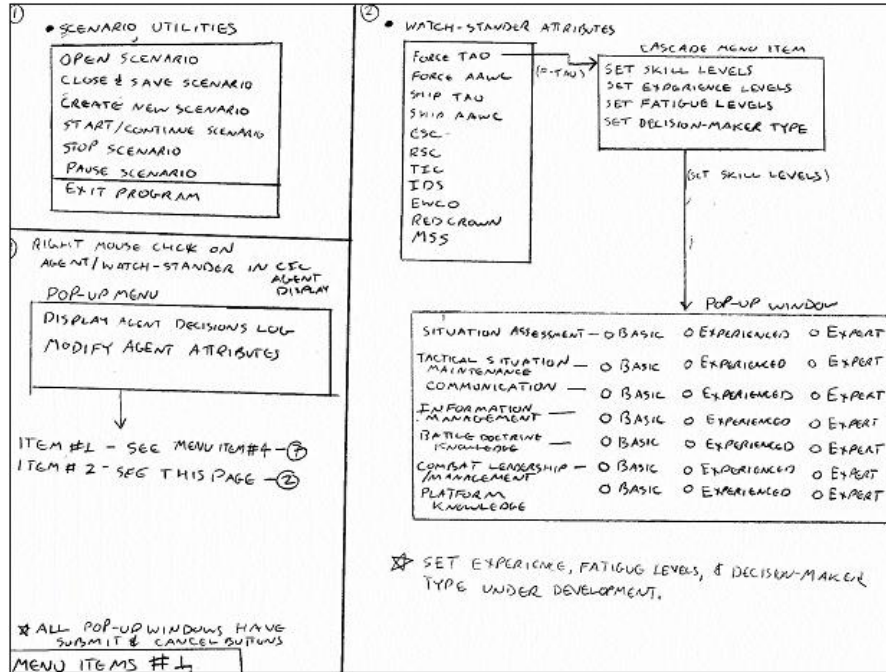 ①
• SCENARIO UTILITIES
OPEN SCENARIO
CLOSE & SAVE SCENARIO
CREATE NEW SCENARIO
START/CONTINUE SCENARIO
STOP SCENARIO
PAUSE SCENARIO
EXIT PROGRAM
RIGHT MOUSE CLICK ON
AGENT/WATCH-STANDER IN CIC
AGENT
DISPLAY
POP-UP MENU
DISPLAY AGENT DECISIONS LOG
MODIFY AGENT ATTRIBUTES
ITEM #1 - SEE MENU ITEM #4 -
ITEM # 2 - SEE THIS PAGE - ②
☆ ALL POP-UP WINDOWS HAVE
SUBMIT & CANCEL BUTTONS
MENU ITEMS #1
②
• WATCH-STANDER ATTRIBUTES
FORCE TAO
FORCE AAWC
SHIP TAO
SHIP AAWC
CSC
RSC
TIC
IDS
EWCO
RED CROWN
MSS
(F-TAO)
CASCADE MENU ITEM
SET SKILL LEVELS
SET EXPERIENCE LEVELS
SET FATIGUE LEVELS
SET DECISION-MAKER TYPE
(SET SKILL LEVELS)
POP-UP WINDOW
SITUATION ASSESSMENT - O BASIC O EXPERIENCED O EXPERT
TACTICAL SITUATION - O BASIC O EXPERIENCED O EXPERT
MAINTENANCE
COMMUNICATION - O BASIC O EXPERIENCED O EXPERT
INFORMATION - O BASIC O EXPERIENCED O EXPERT
MANAGEMENT
BATTLE DOCTRINE - O BASIC O EXPERIENCED O EXPERT
KNOWLEDGE
COMBAT LEADERSHIP - O BASIC O EXPERIENCED O EXPERT
/MANAGEMENT
PLATFORM O BASIC O EXPERIENCED O EXPERT
KNOWLEDGE
☆ SET EXPERIENCE, FATIGUE LEVELS, & DECISION-MAKER
TYPE UNDER DEVELOPMENT.